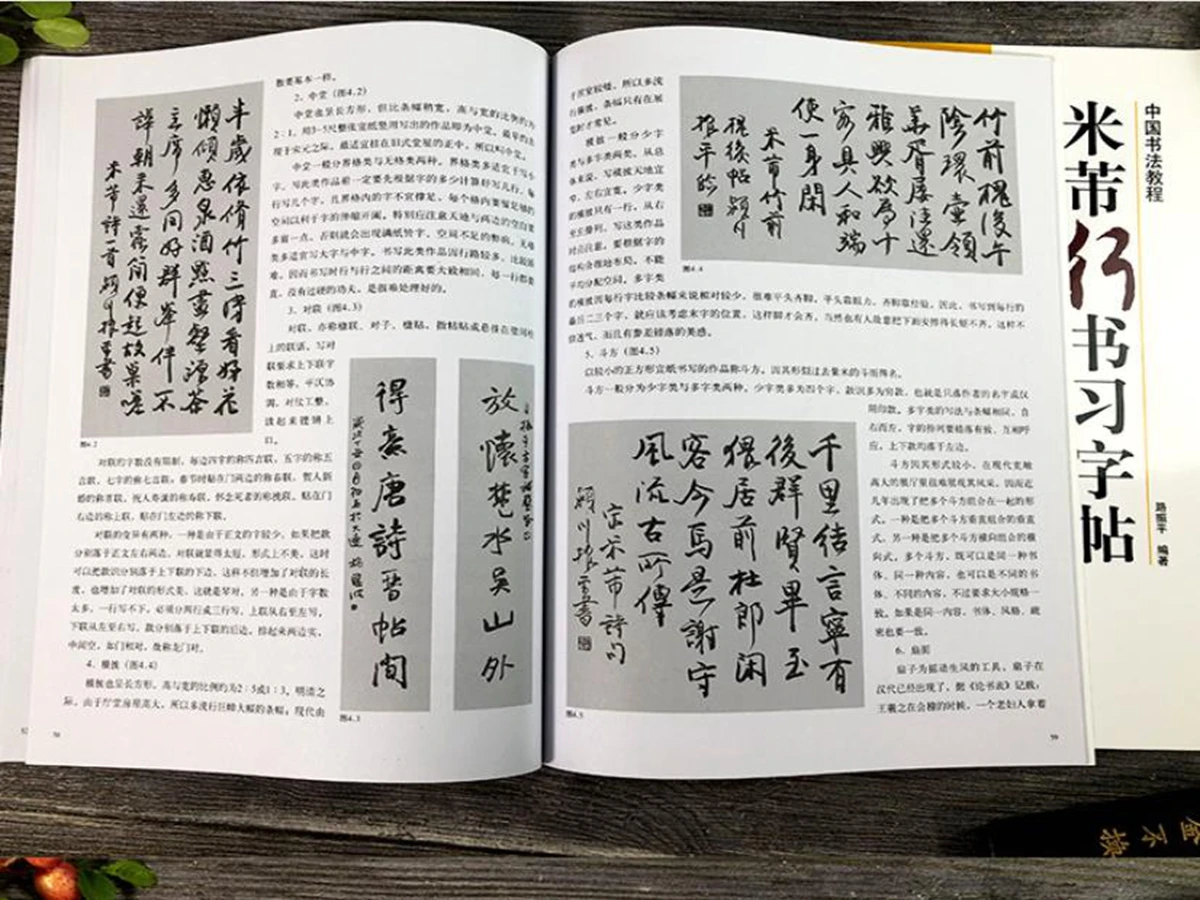 散要基本一样。
2. 中堂（图4.2）
中堂也呈长方形，但比条幅稍宽，高与宽的比例约为
2：1。用3~5尺整张宣纸竖用写出的作品即为中堂。最早出
现于宋元之际，最适宜挂在旧式堂屋的正中，所以叫中堂。
中堂一般分界格类与无格类两种。界格类多适宜于写小
字，写此类作品前一定要先根据字的多少计算好写几行，每
行写几个字，且界格内的字不宜撑足，每个格内要留足够的
空间以利于字的伸缩开阖。特别应注意天地与两边的空白要
多留一点，否则就会出现满纸皆字、空间不足的弊病。无格
类多适宜写大字与中字，书写此类作品因行路较多，比较困
难，因而书写时行与行之间的距离要大致相同，每一行都要
直，没有过硬的功夫，是很难处理好的。
3. 对联（图4.3）
对联，亦称楹联、对子、楹贴，指粘贴或悬挂在壁间柱
上的联语。写对
联要求上下联字
数相等，平仄协
调，对仗工整，
读起来铿锵上
口。
半岁依修竹三时看好花
懒倾惠泉酒点尽壑源茶
主席多同好群峰伴不
哗朝来还蠹简便起故巢嗟
米芾诗一首
图4.2
对联的字数没有限制，每边四字的称四言联，五字的称五
言联，七字的称七言联；春节时贴在门两边的称春联，贺人新
婚的称喜联，祝人寿诞的称寿联，怀念死者的称挽联。贴在门
右边的称上联，贴在门左边的称下联。
对联的变异有两种。一种是由于正文的字较少，如果把款
分别落于正文左右两边，对联就显得太短，形式上不美，这时
可以把款识分别落于上下联的下边，这样不但增加了对联的长
度，也增加了对联的形式美，这就是琴对。另一种是由于字数
太多，一行写不下，必须分两行或三行写，上联从右至左写，
下联从左至右写，款分别落于上下联的后边，排起来两边实，
中间空，如门相对，故称龙门对。
4. 横披（图4.4）
横披也呈长方形，高与宽的比例约为2：5或1：3。明清之
际，由于厅堂房屋高大，所以多流行巨嶂大幅的条幅；现代由
放怀楚水吴山外
得意唐诗晋帖间
图4.3
58
于居室较矮，所以多流
行横披，条幅只有在展
览时才常见。
横披一般分少字
类与多字类两类。从总
体来说，写横披天地宜
窄，左右宜宽。少字类
的横披只有一行，从右
至左排列，写这类作品
时应注意，要根据字的
结构合理地布局，不能
平均分配空间。多字类
的横披因每行字比较条幅来说相对较少，很难平头齐脚，平头靠眼力，齐脚靠经验。因此，书写到每行的
最后二三个字，就应该考虑末字的位置，这样脚才会齐。当然也有人故意把下面安排得长短不齐，这样不
但透气，而且有参差错落的美感。
竹前槐后午
阴环壶领
萬胥屡清還
雅兴欲为十
客具人和瑞
便一身閑
米芾竹前
槐後帖
图4.4
5. 斗方（图4.5）
以较小的正方形宣纸书写的作品称斗方，因其形似过去量米的斗而得名。
斗方一般分为少字类与多字类两种。少字类多为四个字，款识多为穷款，也就是只落作者的名字或仅
钤印款。多字类的写法与条幅相同，自
右而左，字的排列要错落有致，互相呼
应，上下款均落于左边。
斗方因其形式较小，在现代宽敞
高大的展厅里很难展现其风采。因而近
几年出现了把多个斗方组合在一起的形
式，一种是把多个斗方垂直组合的垂直
式，另一种是把多个斗方横向组合的横
向式。多个斗方，既可以是同一种书
体、同一种内容，也可以是不同的书
体、不同的内容，不过要求大小规格一
致。如果是同一内容，书体、风格、疏
密也要一致。
6. 扇面
扇子为摇动生风的工具，扇子在
汉代已经出现了，据《论书表》记载，
王羲之在会稽的时候，一个老妇人拿着
千里结言宁有
後群贤毕至
猥居前杜郎闲
客今焉是谢守
风流古所传
宋米芾诗句
图4.5
59
中国书法教程
米芾行书习字帖
路振平 编著
金不换